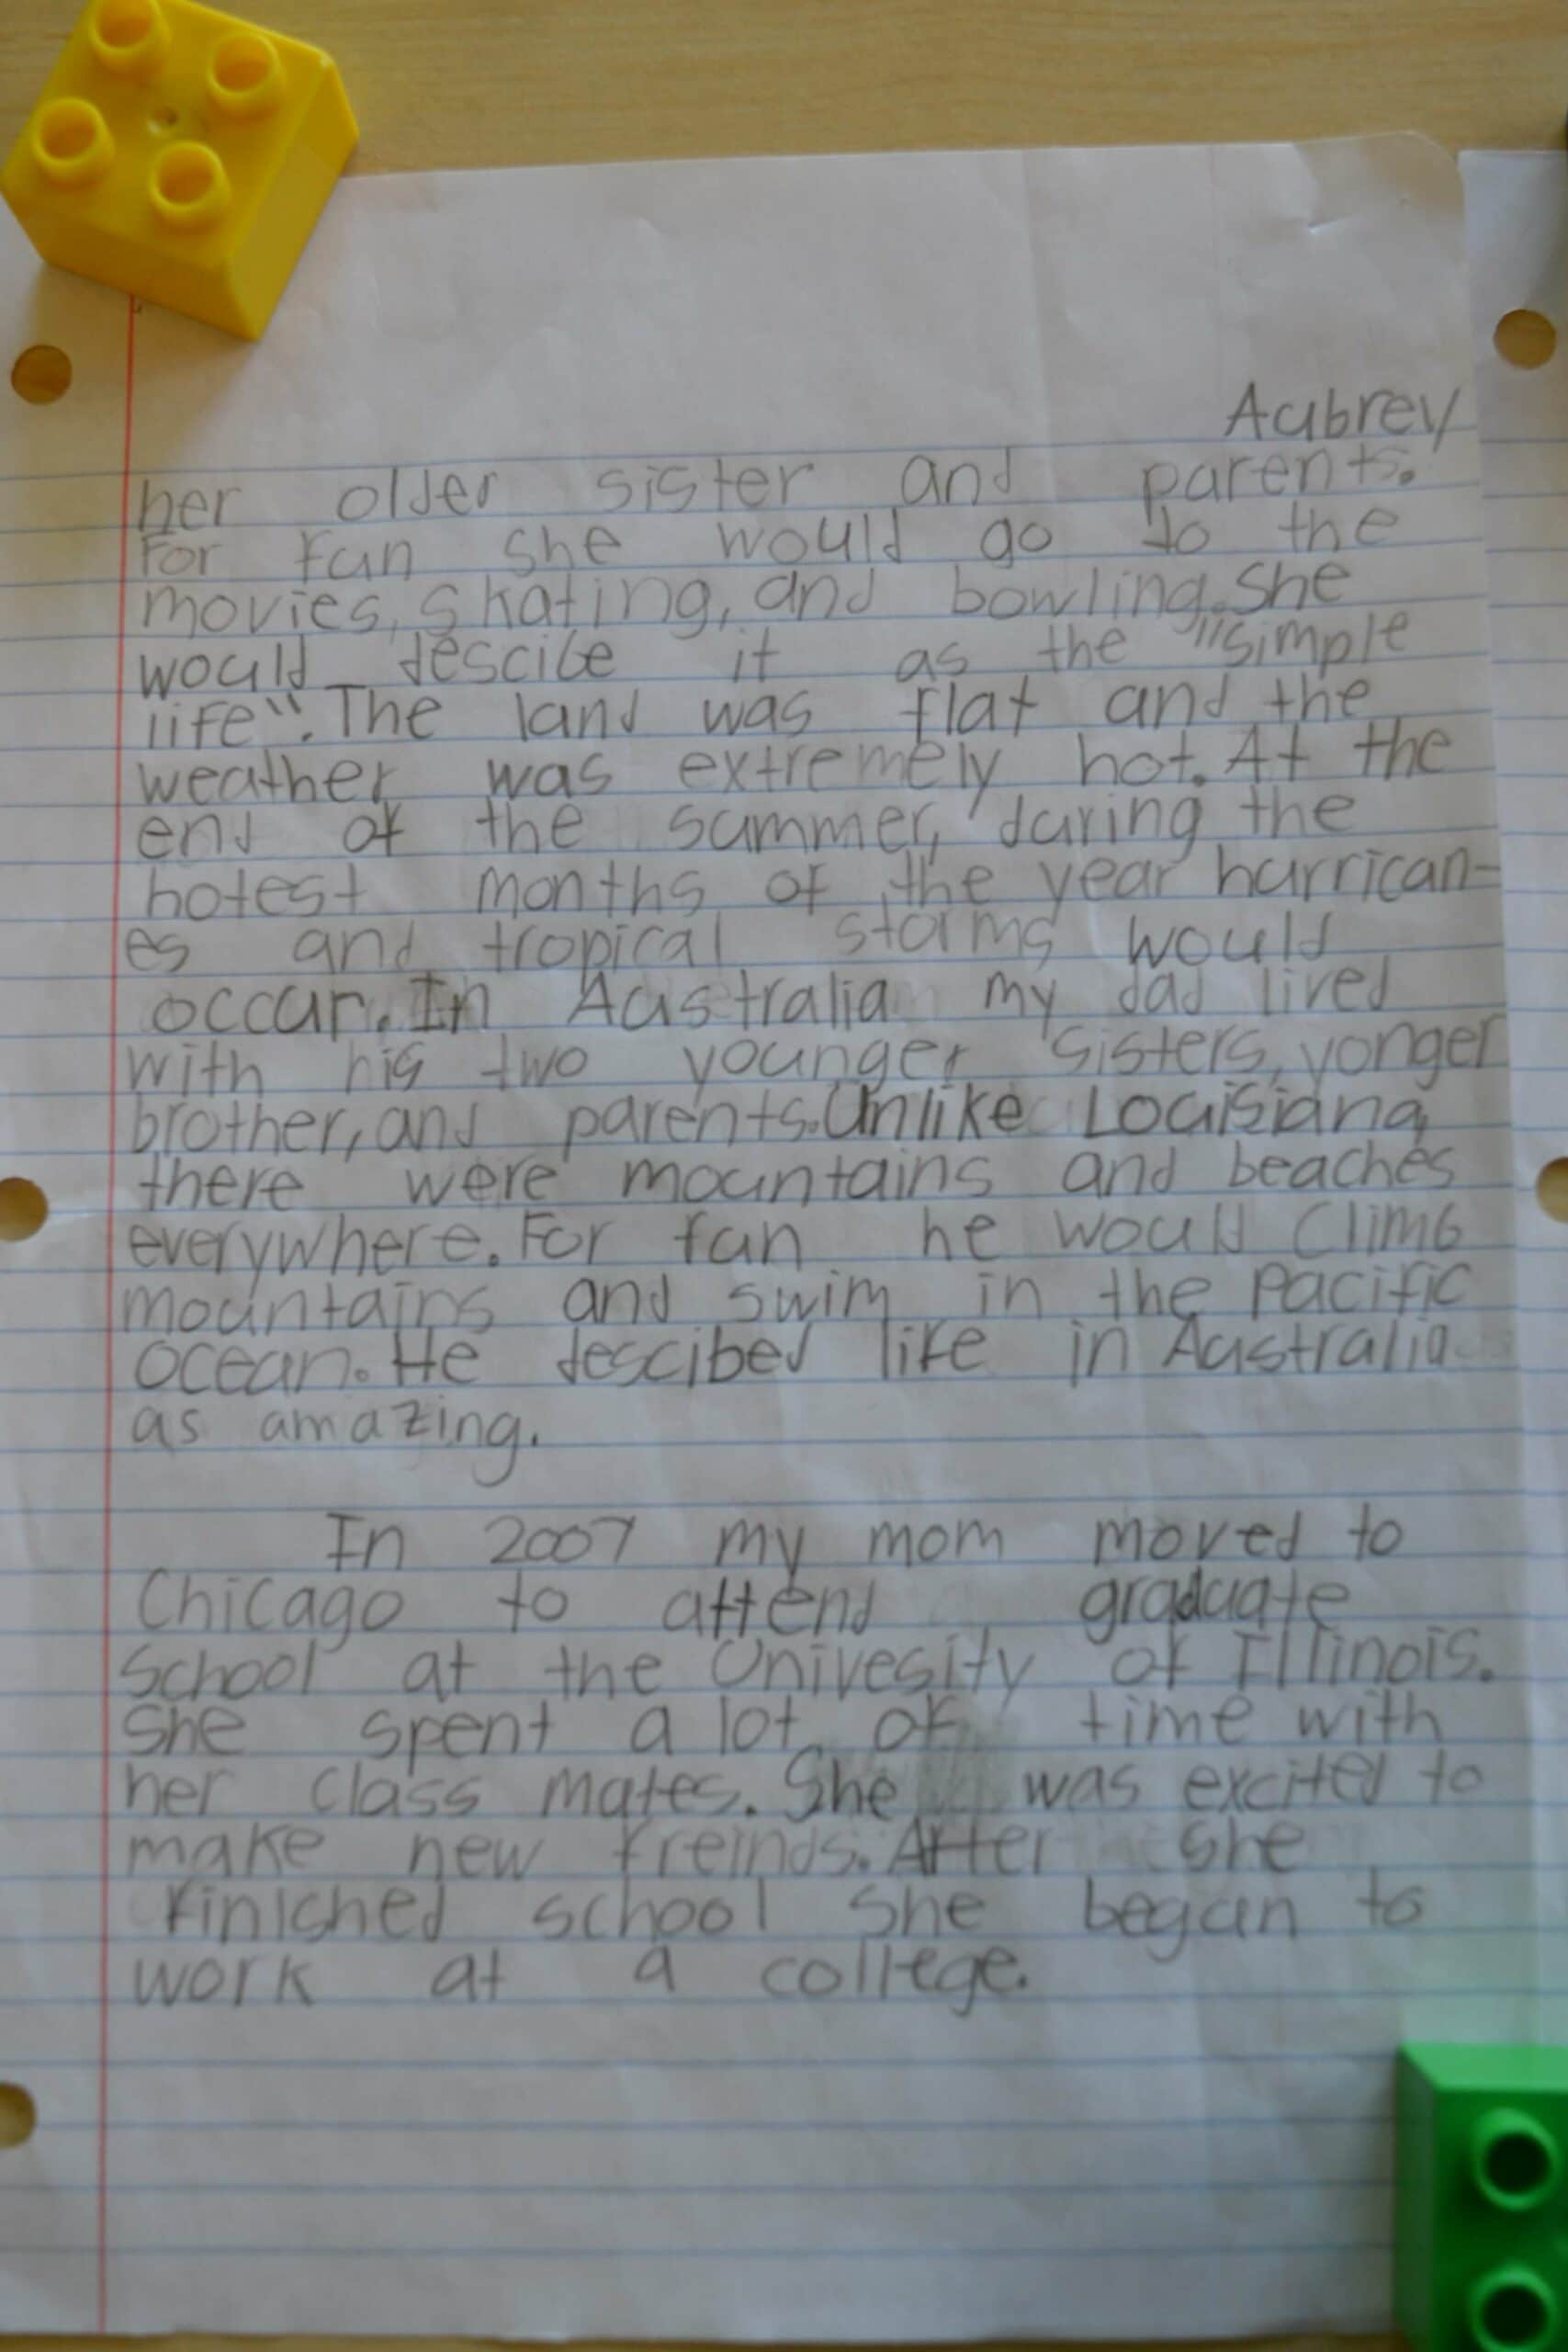 Aubrey
her older sister and parents.
For fun she would go to the
movies, skating, and bowling. She
would descibe it as the "simple
life". The land was flat and the
weather was extremely hot. At the
end of the summer, during the
hotest months of the year hurrican-
es and tropical storms would
occur. In Australia my dad lived
with his two younger sisters, yonger
brother, and parents. Unlike Louisiana,
there were mountains and beaches
everywhere. For fun he would climb
mountains and swim in the Pacific
ocean. He descibed life in Australia
as amazing.
In 2007 my mom moved to
Chicago to attend graduate
School at the Univesity of Illinois.
She spent a lot of time with
her class mates. She was excited to
make new freinds. After she
finished school she began to
work at a college.